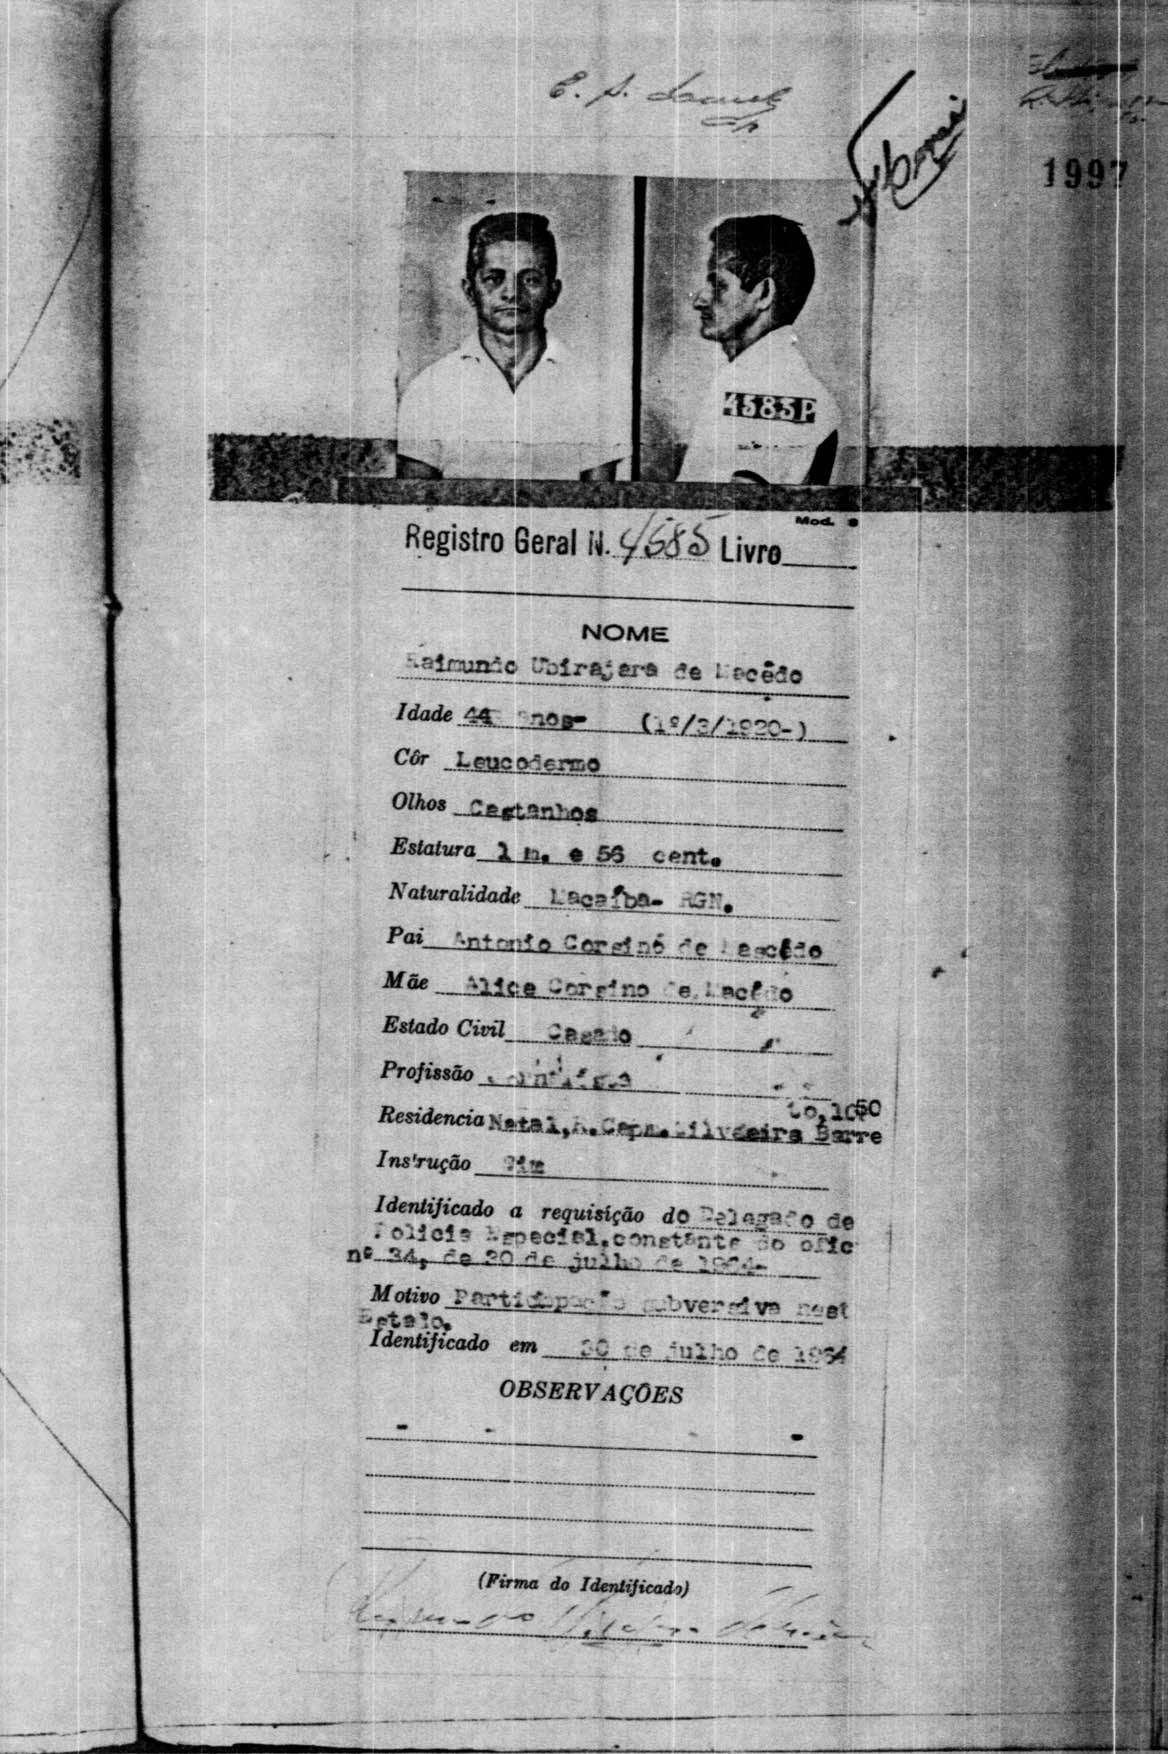 E. S.
1997
4583P
Mod. 8
Registro Geral N. 4585 Livro
NOME
Raimundo Ubirajara de Macêdo
Idade 44 anos- (1º/3/1920-)
Côr Leucodermo
Olhos Castanhos
Estatura 1 m. e 56 cent.
Naturalidade Macaíba- RGN.
Pai Antonio Corsino de Mascêdo
Mãe Alice Corsino de Macêdo
Estado Civil Casado
Profissão Jornalista
to, 1050
Residencia Natal, R. Capm. Silveira Barre
Instrução Sim
Identificado a requisição do Delegado de
Policia Especial, constante do ofic
nº 34, de 30 de julho de 1964-
Motivo Participação subversiva nest
Estado.
Identificado em 30 de julho de 1964
OBSERVAÇÕES
- - -
(Firma do Identificado)